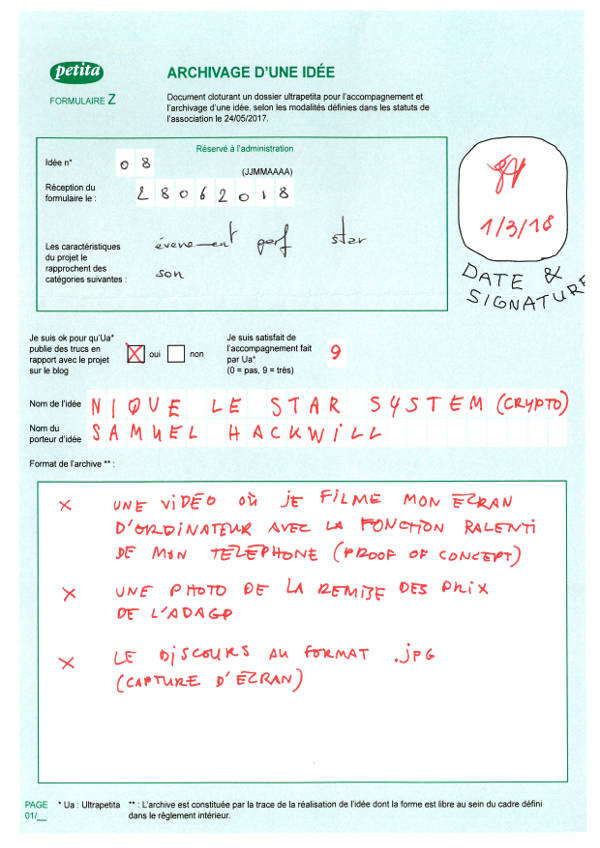 petita
FORMULAIRE Z
ARCHIVAGE D'UNE IDÉE
Document cloturant un dossier ultrapetita pour l'accompagnement et
l'archivage d'une idée, selon les modalités définies dans les statuts de
l'association le 24/05/2017.
Réservé à l'administration
Idée n° 08
(JJMMAAAA)
Réception du
formulaire le : 28062018
Les caractéristiques
du projet le
rapprochent des
catégories suivantes :
évenement perf star
son
1/3/18
DATE &
SIGNATURE
Je suis ok pour qu'Ua*
publie des trucs en
rapport avec le projet
sur le blog
X oui non
Je suis satisfait de
l'accompagnement fait
par Ua*
(0 = pas, 9 = très)
9
Nom de l'idée NIQUE LE STAR SYSTEM (CRYPTO)
Nom du
porteur d'idée SAMUEL HACKWILL
Format de l'archive ** :
x UNE VIDÉO OÙ JE FILME MON ECRAN
D'ORDINATEUR AVEC LA FONCTION RALENTI
DE MON TELEPHONE (PROOF OF CONCEPT)
x UNE PHOTO DE LA REMISE DES PRIX
DE L'ADAGP
x LE DISCOURS AU FORMAT .JPG
(CAPTURE D'ECRAN)
PAGE
01/__
* Ua : Ultrapetita ** : L'archive est constituée par la trace de la réalisation de l'idée dont la forme est libre au sein du cadre défini
dans le règlement intérieur.